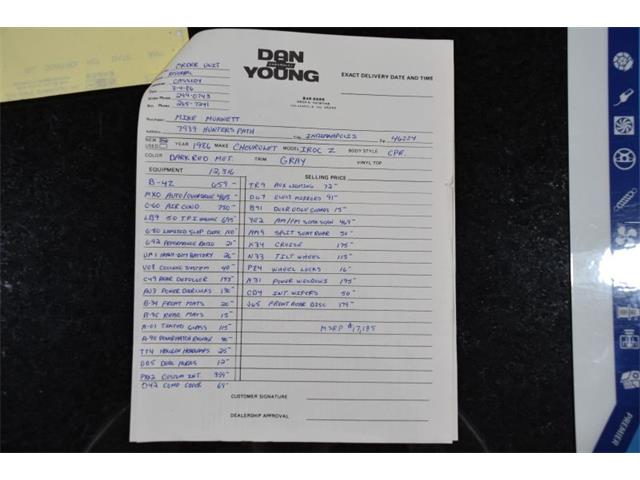 DAN
YOUNG
EXACT DELIVERY DATE AND TIME
ORDER UNIT
CASSIDY
3-4-86
299-0743
255-7241
MIKE
7939 HUNTERS PATH INDIANAPOLIS 46224
NEW
USED YEAR 1986 MAKE CHEVROLET MODEL IROC Z BODY STYLE CPE.
COLOR DARK RED MET. TRIM GRAY VINYL TOP
EQUIPMENT 12,316 SELLING PRICE
B-4Z 659 TR9 AUX LIGHTING 72
MXO AUTO/OVERDRIVE 465 DG7 ELECT MIRRORS 91
C-60 AIR COND 750 B91 DOOR EDGE GUARDS 15
LB9 5.0 TPI ENGINE 695 AM/FM 469
G-80 LIMITED SLIP 100 AM9 SPLIT SEAT REAR 50
G92 PERFORMANCE RATIO 21 K34 CRUISE 175
UA1 HEAVY DUTY BATTERY 26 N33 TILT WHEEL 115
VO8 COOLING SYSTEM 40 PE4 WHEEL LOCKS 16
C49 REAR DEFOGGER 135 A31 POWER WINDOWS 195
AU3 POWER DOOR LOCKS 130 CD4 INT. WIPERS 50
B-34 FRONT MATS 20 J65 FRONT REAR DISC 179
B-35 REAR MATS 15
A-01 TINTED GLASS 115 MSRP $17,185
A-90
TT4 HALOGEN HEADLAMPS 25
U05 DUAL HORNS 12
CUSTOM INT 359
D42 CARGO COVER 69
CUSTOMER SIGNATURE
DEALERSHIP APPROVAL
PREMIER